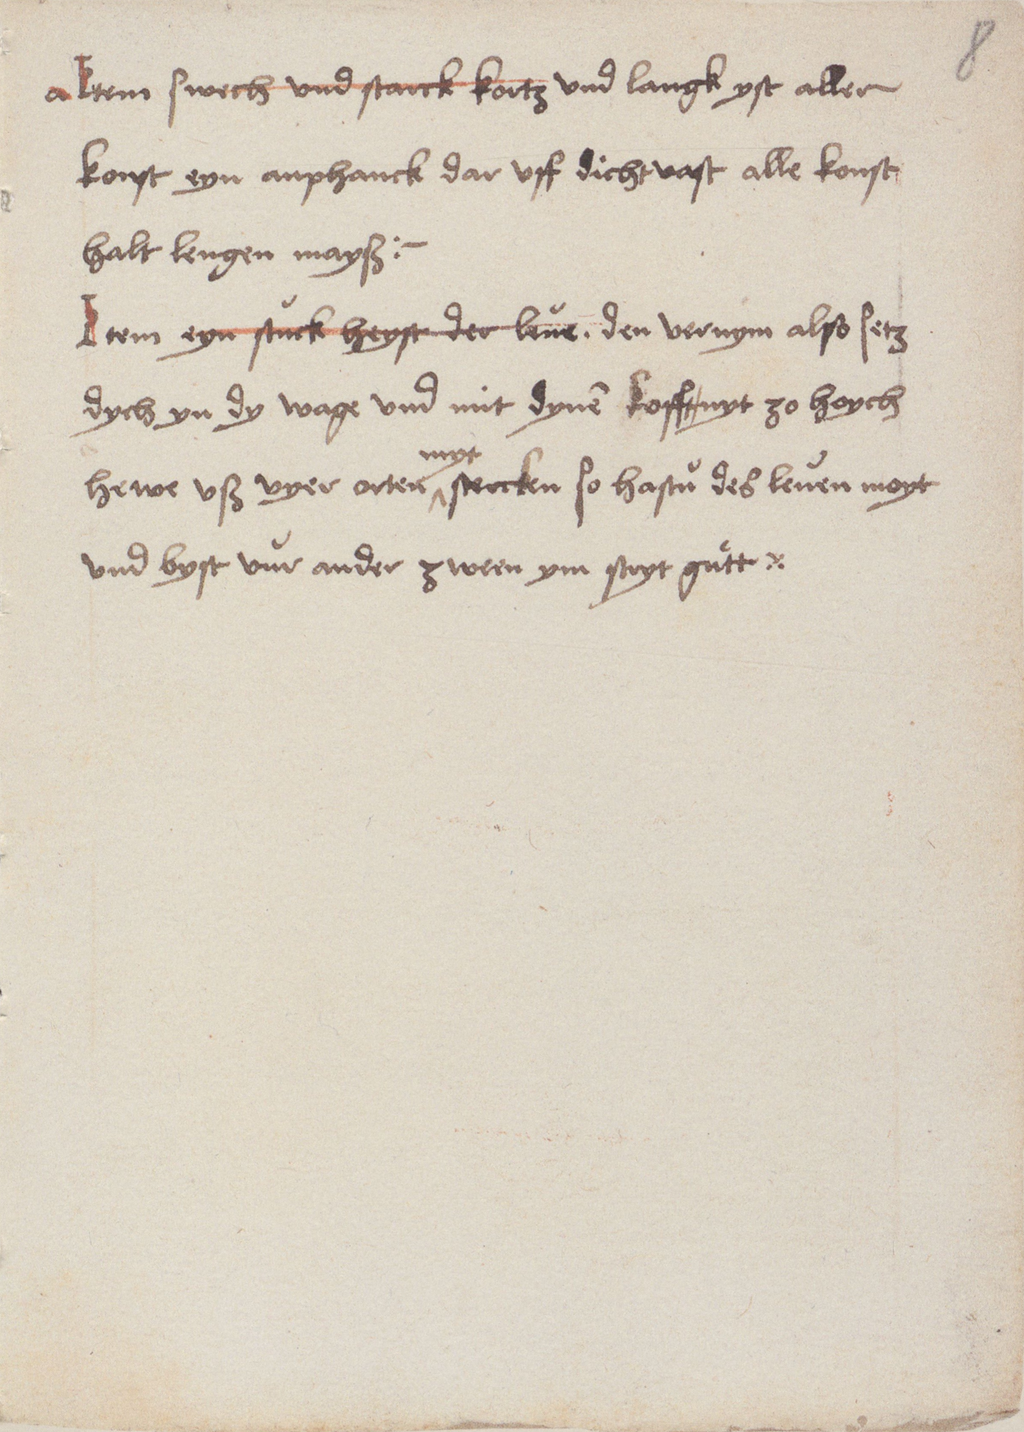 8
a Item swech vnd starck kortz vnd langk yst aller
konst eyn anphanck dar vff dicht vast alle konst
halt lengen mayß :~
Item eyn stuck heyst der leue . den vernym also setz
dych yn dy wage vnd mit dynē koff nyt zo hoych
myt
hewe vß vyer orten ^ stercken so hastu des leuen moyt
vnd byst vur ander zween ym stryt gutt :